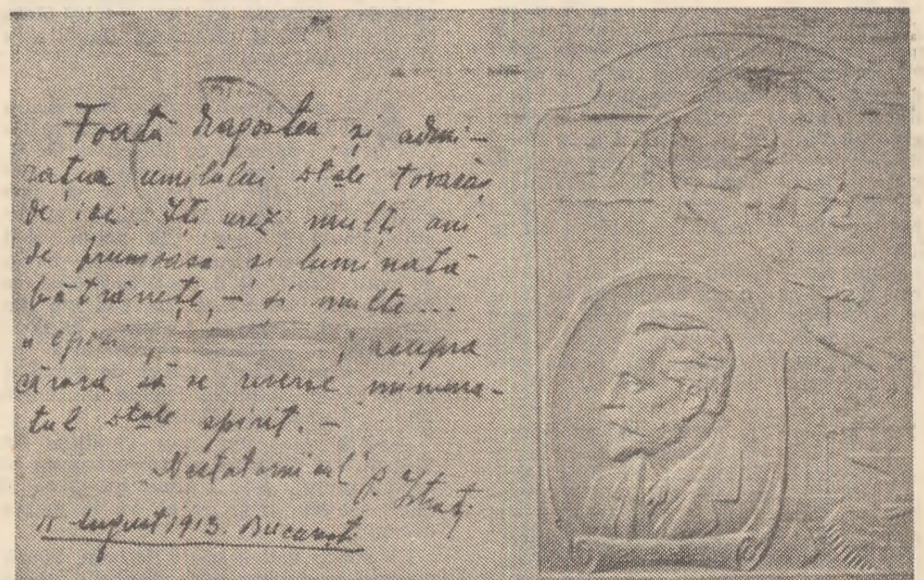 Toată dragostea și admi-
rația umilului d-tale tovarăș
de idei. Iți urez multi ani
de frumoasă si luminată
bătrânețe, – si multe...
asupra
cărora să se reverse minuna-
tul d-tale spirit. –
„Nestatornicul" P. Istrati
11 August 1913. București